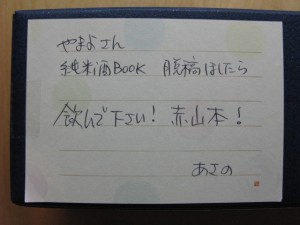 やまよさん
純米酒BOOK 脱稿ましたら
飲んで下さい! 赤山本!
あさの